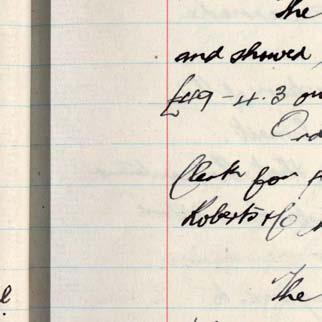 The
and showed
£49-4.3 ou
Ord
Clerk for
Roberts & Co
The